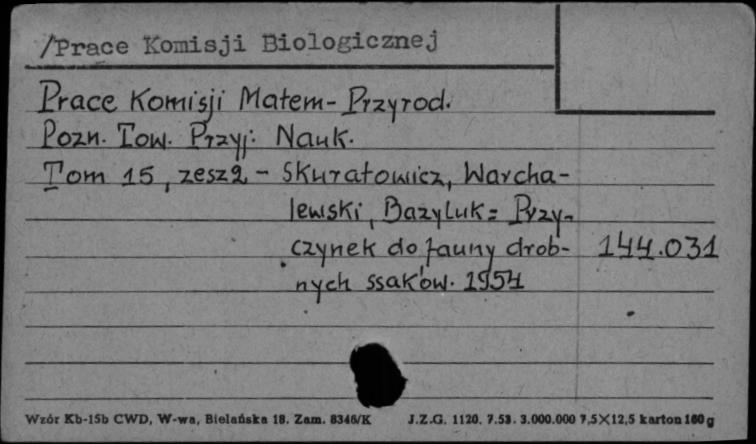 /Prace Komisji Biologicznej
Prace Komisji Matem-Przyrod.
Pozn. Tow. Przyj. Nauk.
Tom 15, zesz 2 - Skuratowicz, Warcha-
lewski, Bazyluk: Przy-
czynek do fauny drob- 144.031
nych ssaków. 1954
Wzór Kb-15b CWD, W-wa, Bielańska 18. Zam. 8346/K J.Z.G. 1120. 7.53. 3.000.000 7,5×12,5 karton 160 g